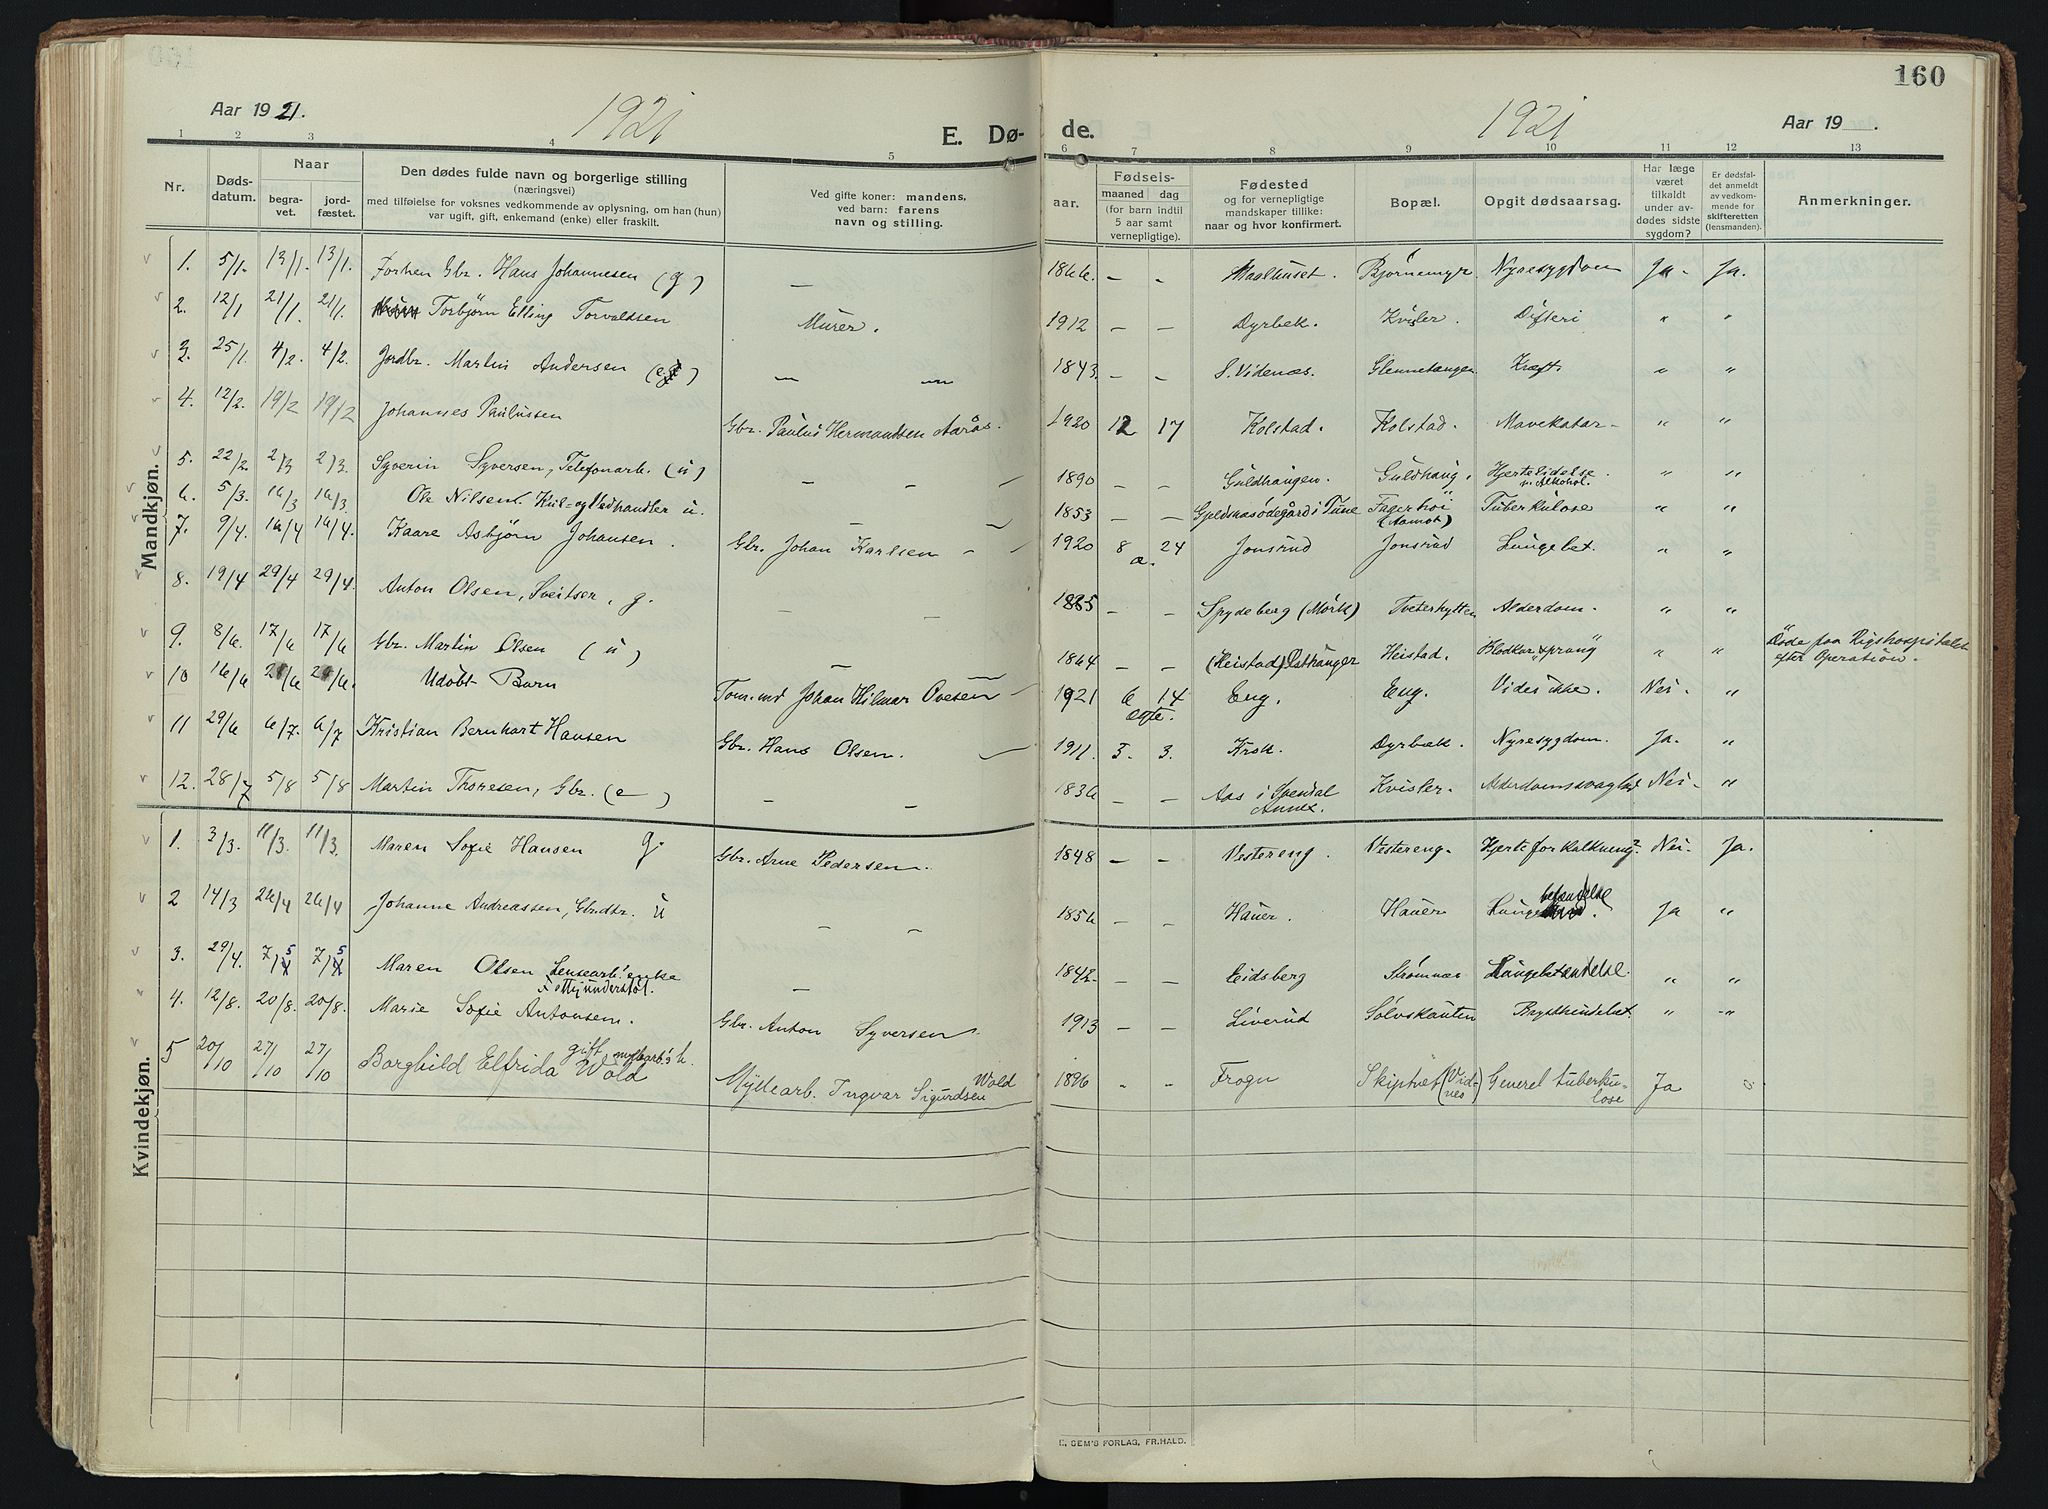 160
Aar 1921.
1921
E. Dø-
de.
1921
Aar 19 .
1 2 3 4 5 6 7 8 9 10 11 12 13
Nr.
Døds-
datum.
Naar
begra-
vet.
jord-
fæstet.
Den dødes fulde navn og borgerlige stilling
(næringsvei)
med tilføielse for voksnes vedkommende av oplysning, om han (hun)
var ugift, gift, enkemand (enke) eller fraskilt.
Ved gifte koner: mandens,
ved barn: farens
navn og stilling.
Fødsels-
aar.
maaned dag
(for barn indtil
5 aar samt
vernepligtige).
Fødested
og for vernepligtige
mandskaper tillike:
naar og hvor konfirmert.
Bopæl.
Opgit dødsaarsag.
Har læge
været
tilkaldt
under av-
dødes sidste
sygdom?
Er dødsfal-
det anmeldt
av vedkom-
mende for
skifteretten
(lensmanden).
Anmerkninger.
Mandkjøn.
1. 5/1. 13/1. 13/1. Forhen Gbr. Hans Johannesen (g) — 1866. — - Maalhuset. Bjørnemyr. Nyresygdom Ja - Ja.
2. 12/1 21/1. 21/1. Torbjørn Elling Torvaldsen Murer. 1912 — — Dyrbek. Kvisler. Difteri " "
3. 25/1. 4/2. 4/2. Jordbr. Martin Andersen (e) — — 1843. — - S. Videnæs. Glennetangen Kræft. " "
4. 12/2. 19/2 19/2 Johannes Paulussen Gbr. Paulus Hermandsen Aarås. 1920 12 17 Kolstad. Kolstad. Mavekatar - " "
5. 22/2. 2/3 2/3. Syverin Syversen, Telefonarb. (u) - - 1890 — — Guldhaugen. Guldhaug. Hjertelidelse. " "
v. Alkohol.
6. 5/3. 16/3 16/3. Ole Nilsen. Kul- og Vedhandler u. — — 1853 — — Gjeldsnæsødegård i Tune Fagerhøi Tuberkulose " "
(Aamot)
7. 9/4. 16/4 16/4. Kaare Asbjørn Johansen. Gbr. Johan Karlsen - 1920 8 24 Jonsrud Jonsrud Lungebet. " "
8. 19/4 29/4 29/4. Anton Olsen, Sveitser, g. — — 1835 — — Spydeberg (Mørk) Tveterhytten Alderdom. " "
9. 8/6. 17/6 17/6. Gbr. Martin Olsen (u) — 1864 — — (Heistad) Østhanger Heistad. Blodkar sprang " " Døde paa Rigshospitalet
efter Operation.
10 16/6 24/6 24/6. Udøbt Barn Tøm.md Johan Hilmar Ovesen 1921 6 14 Eng. Eng. Vides ikke. Nei - "
egte.
11 29/6 6/7. 6/7 Kristian Bernhart Hansen Gbr. Hans Olsen. 1911. 3. 3. Krok. Dyrbæk. Nyresygdom. Ja. "
12. 28/7 5/8 5/8 Martin Thoresen, Gbr. (e) - - 1836 — — Aas i Svendal Kvisler. Alderdomssvaghed Nei - "
Annex.
Kvindekjøn.
1. 3/3. 11/3. 11/3. Maren Sofie Hansen g. Gbr. Arne Pedersen. 1848 — — Vestereng. Vestereng. Hjerteforkalkning? Nei - Ja.
2 14/3 26/4 26/4 Johanne Andreassen, Gbrdtr. u — — 1856 — — Hauer. Hauer Lungebetændelse. Ja "
3. 29/4. 7/5 7/5 Maren Olsen Lensearb. enke — 1842 — — Eidsberg Strømnæs Lungebetændelse. " "
fattigunderstøt.
4. 12/8. 20/8. 20/8. Marie Sofie Antonsen. Gbr. Anton Syversen. 1913 — — Liverud Sølvskauten Brysthindebet. " "
5 20/10 27/10 27/10 Borghild Elfrida Wold gift myllearb.'s h. Myllearb. Ingvar Sigurdsen Wold 1896 " " Frogn Skiptvet (Vid-
nes) Generel tuberku-
lose Ja
E. SEM'S FORLAG, FR.HALD.